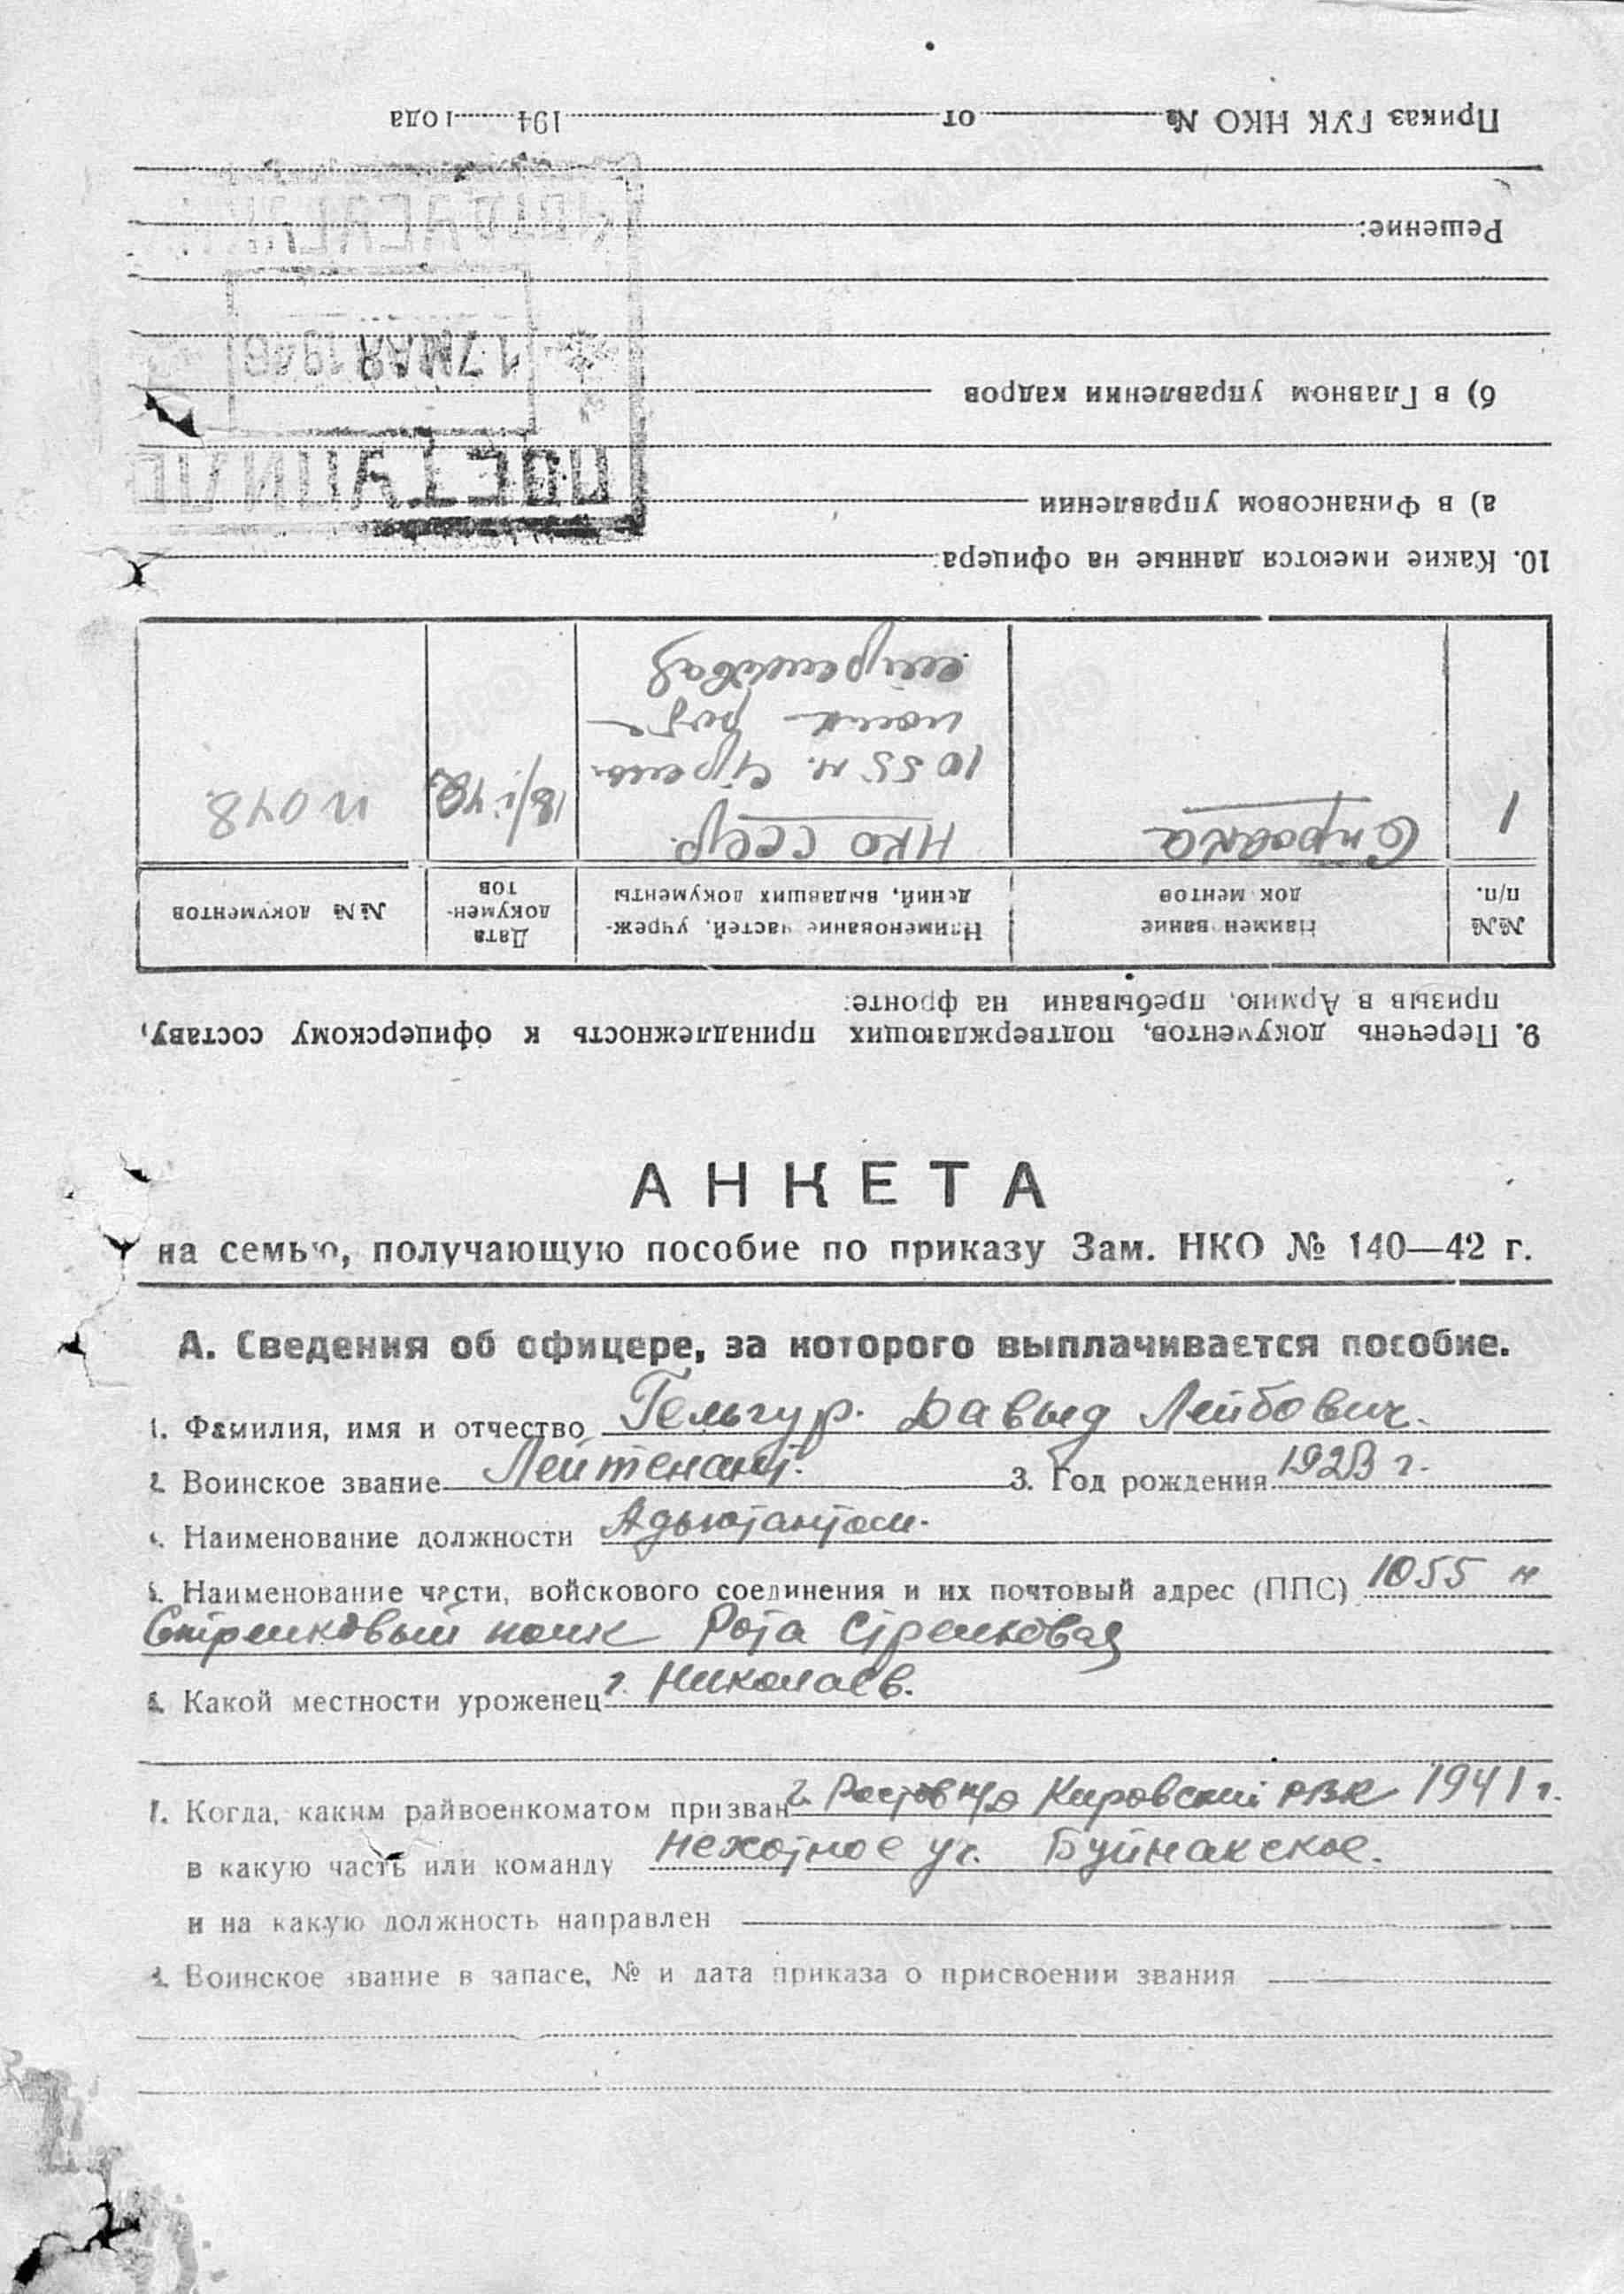 АНКЕТА
на семью, получающую пособие по приказу Зам. НКО № 140—42 г.
А. Сведения об офицере, за которого выплачивается пособие.
1. Фамилия, имя и отчество Гельгур. Давыд Лейбович.
2. Воинское звание Лейтенант. 3. Год рождения 1923 г.
4. Наименование должности Адьютантом.
5. Наименование части, войскового соединения и их почтовый адрес (ППС) 1055 н
Стрелковый полк Рота Стрелковая
6. Какой местности уроженец г. Николаев.
7. Когда, каким райвоенкоматом призван г. Ростов н/д Кировский РВК 1941 г.
в какую часть или команду Пехотное уч. Буйнакское.
и на какую должность направлен
8. Воинское звание в запасе, № и дата приказа о присвоении звания
9. Перечень документов, подтверждающих принадлежность к офицерскому составу,
призыв в Армию, пребывании на фронте:
№№ п/п. Наимен вание док ментов Наименование частей, учреж- дений, выдавших документы Дата докумен- тов №№ документов
1 Справка НКО СССР. 18/I 42 № 048
1055 н. Стрел.
полк рота
стрелковая
10. Какие имеются данные на офицера:
а) в Финансовом управлении
б) в Главном управлении кадров
17 МАЯ 1946
Решение:
Приказ ГУК НКО № от 194 года